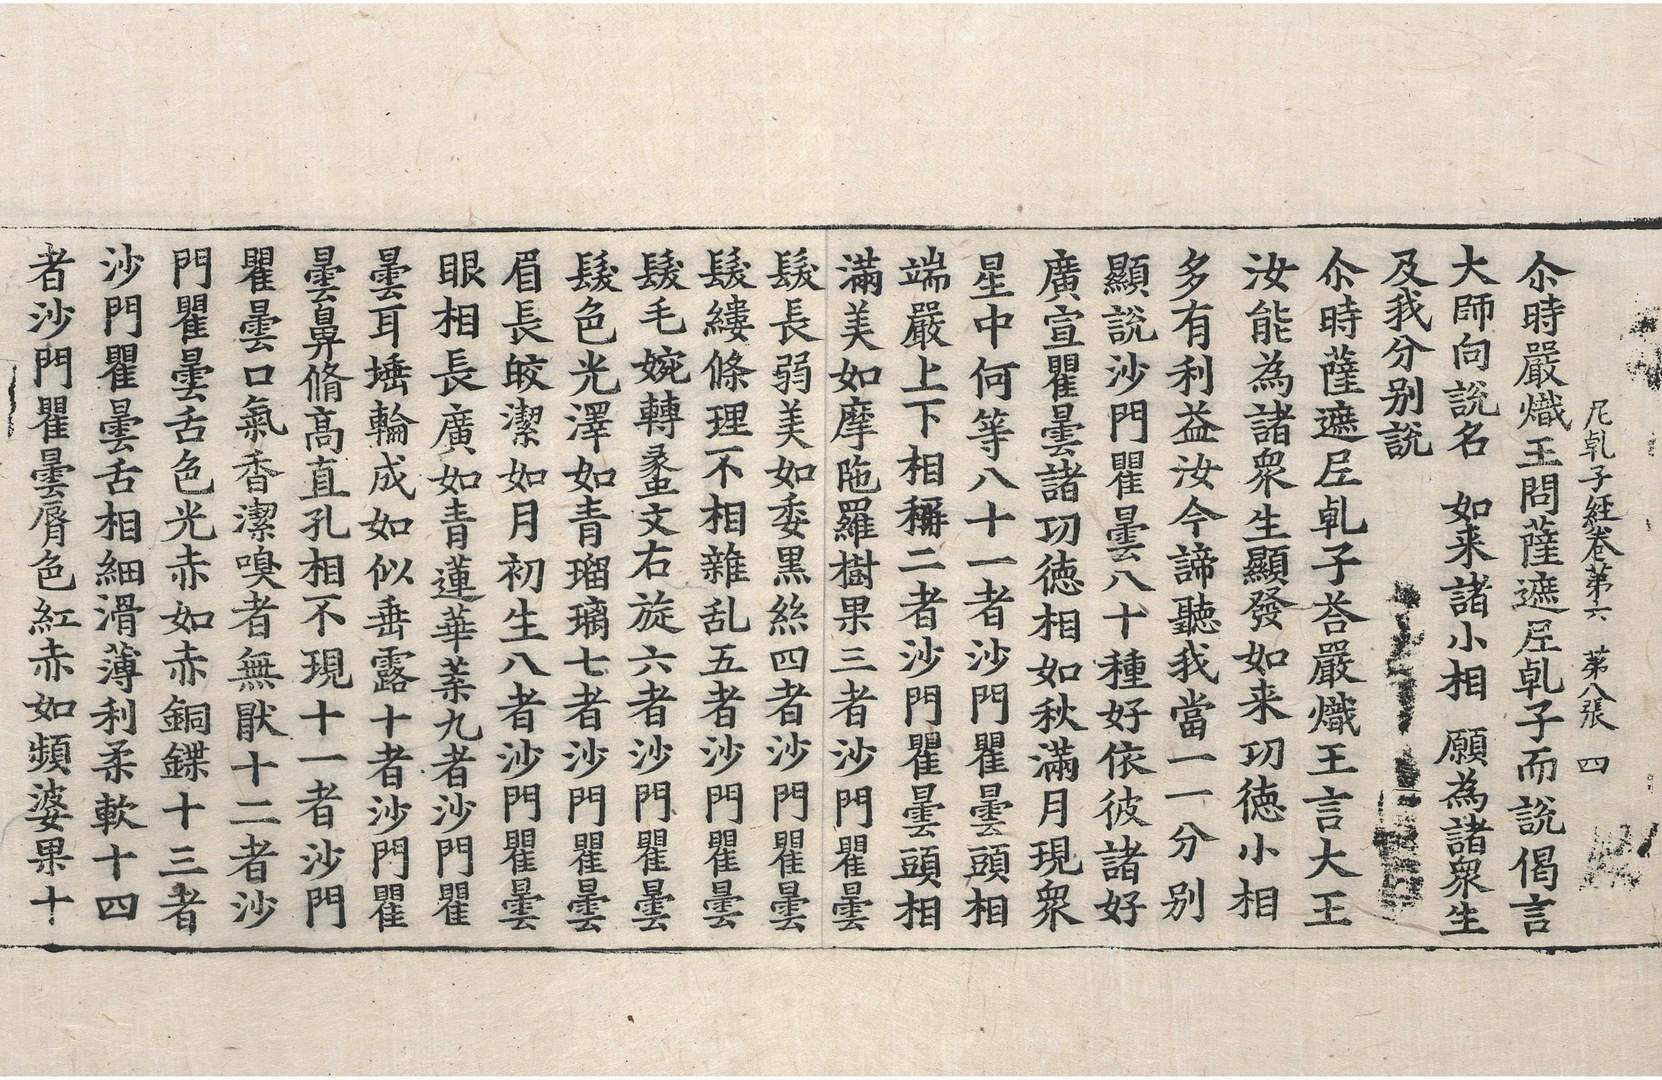 尼乹子経卷第六　第八張　四
尒時嚴熾王問薩遮𡰱乹子而説偈言
大師向説名　如来諸小相　願為諸衆生
及我分别説
尒時薩遮𡰱乹子荅嚴熾王言大王
汝能為諸衆生顯發如来㓛徳小相
多有利益汝今諦聽我當一一分别
顯説沙門瞿曇八十種好依彼諸好
廣宣瞿曇諸㓛徳相如秋滿月現衆
星中何等八十一者沙門瞿曇頭相
端嚴上下相稱二者沙門瞿曇頭相
滿美如摩陁羅樹果三者沙門瞿曇
髮長弱美如委黒絲四者沙門瞿曇
髮縷條理不相雜乱五者沙門瞿曇
髮毛婉轉蚉文右旋六者沙門瞿曇
髮色光澤如青瑠璃七者沙門瞿曇
眉長皎潔如月初生八者沙門瞿曇
眼相長廣如青蓮華葉九者沙門瞿
曇耳埵輪成如似垂露十者沙門瞿
曇鼻脩高直孔相不現十一者沙門
瞿曇口氣香潔嗅者無猒十二者沙
門瞿曇舌色光赤如赤銅鍱十三者
沙門瞿曇舌相細滑薄利柔軟十四
者沙門瞿曇脣色紅赤如頻婆果十